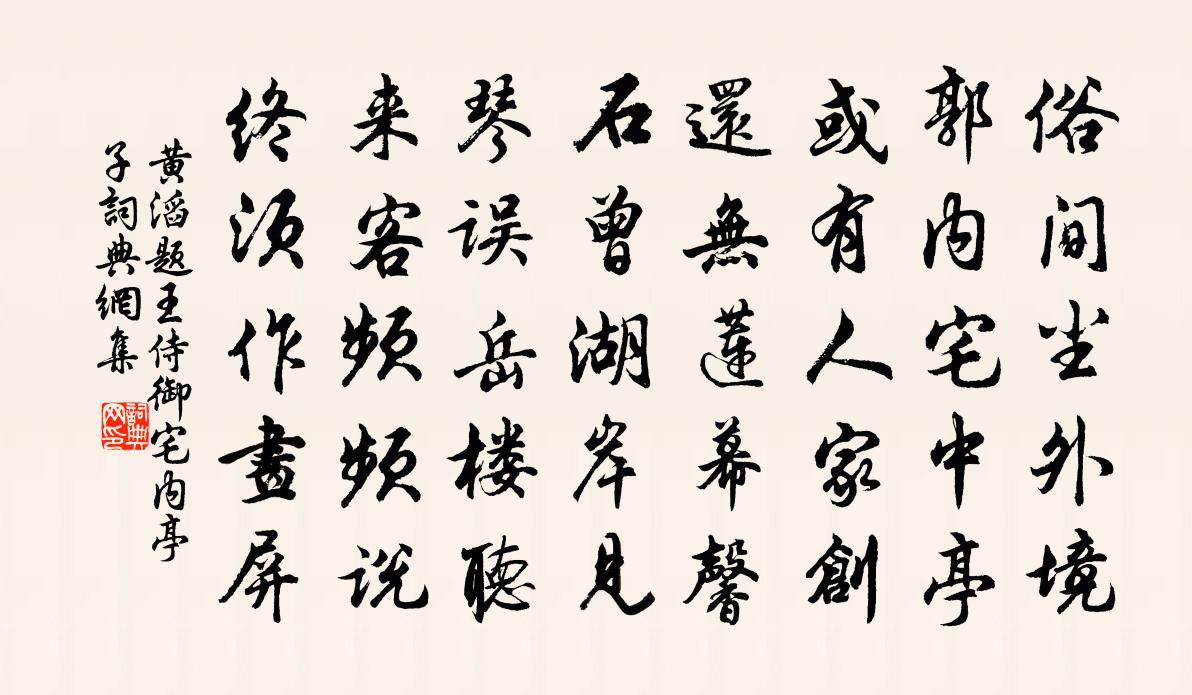 俗间尘外境
郭内宅中亭
或有人家創
還無蓮幕馨
石曾湖岸見
琴误岳楼聽
来客频频说
终须作畫屏
黄滔题王侍御宅内亭
子詞典網集
詞典网印